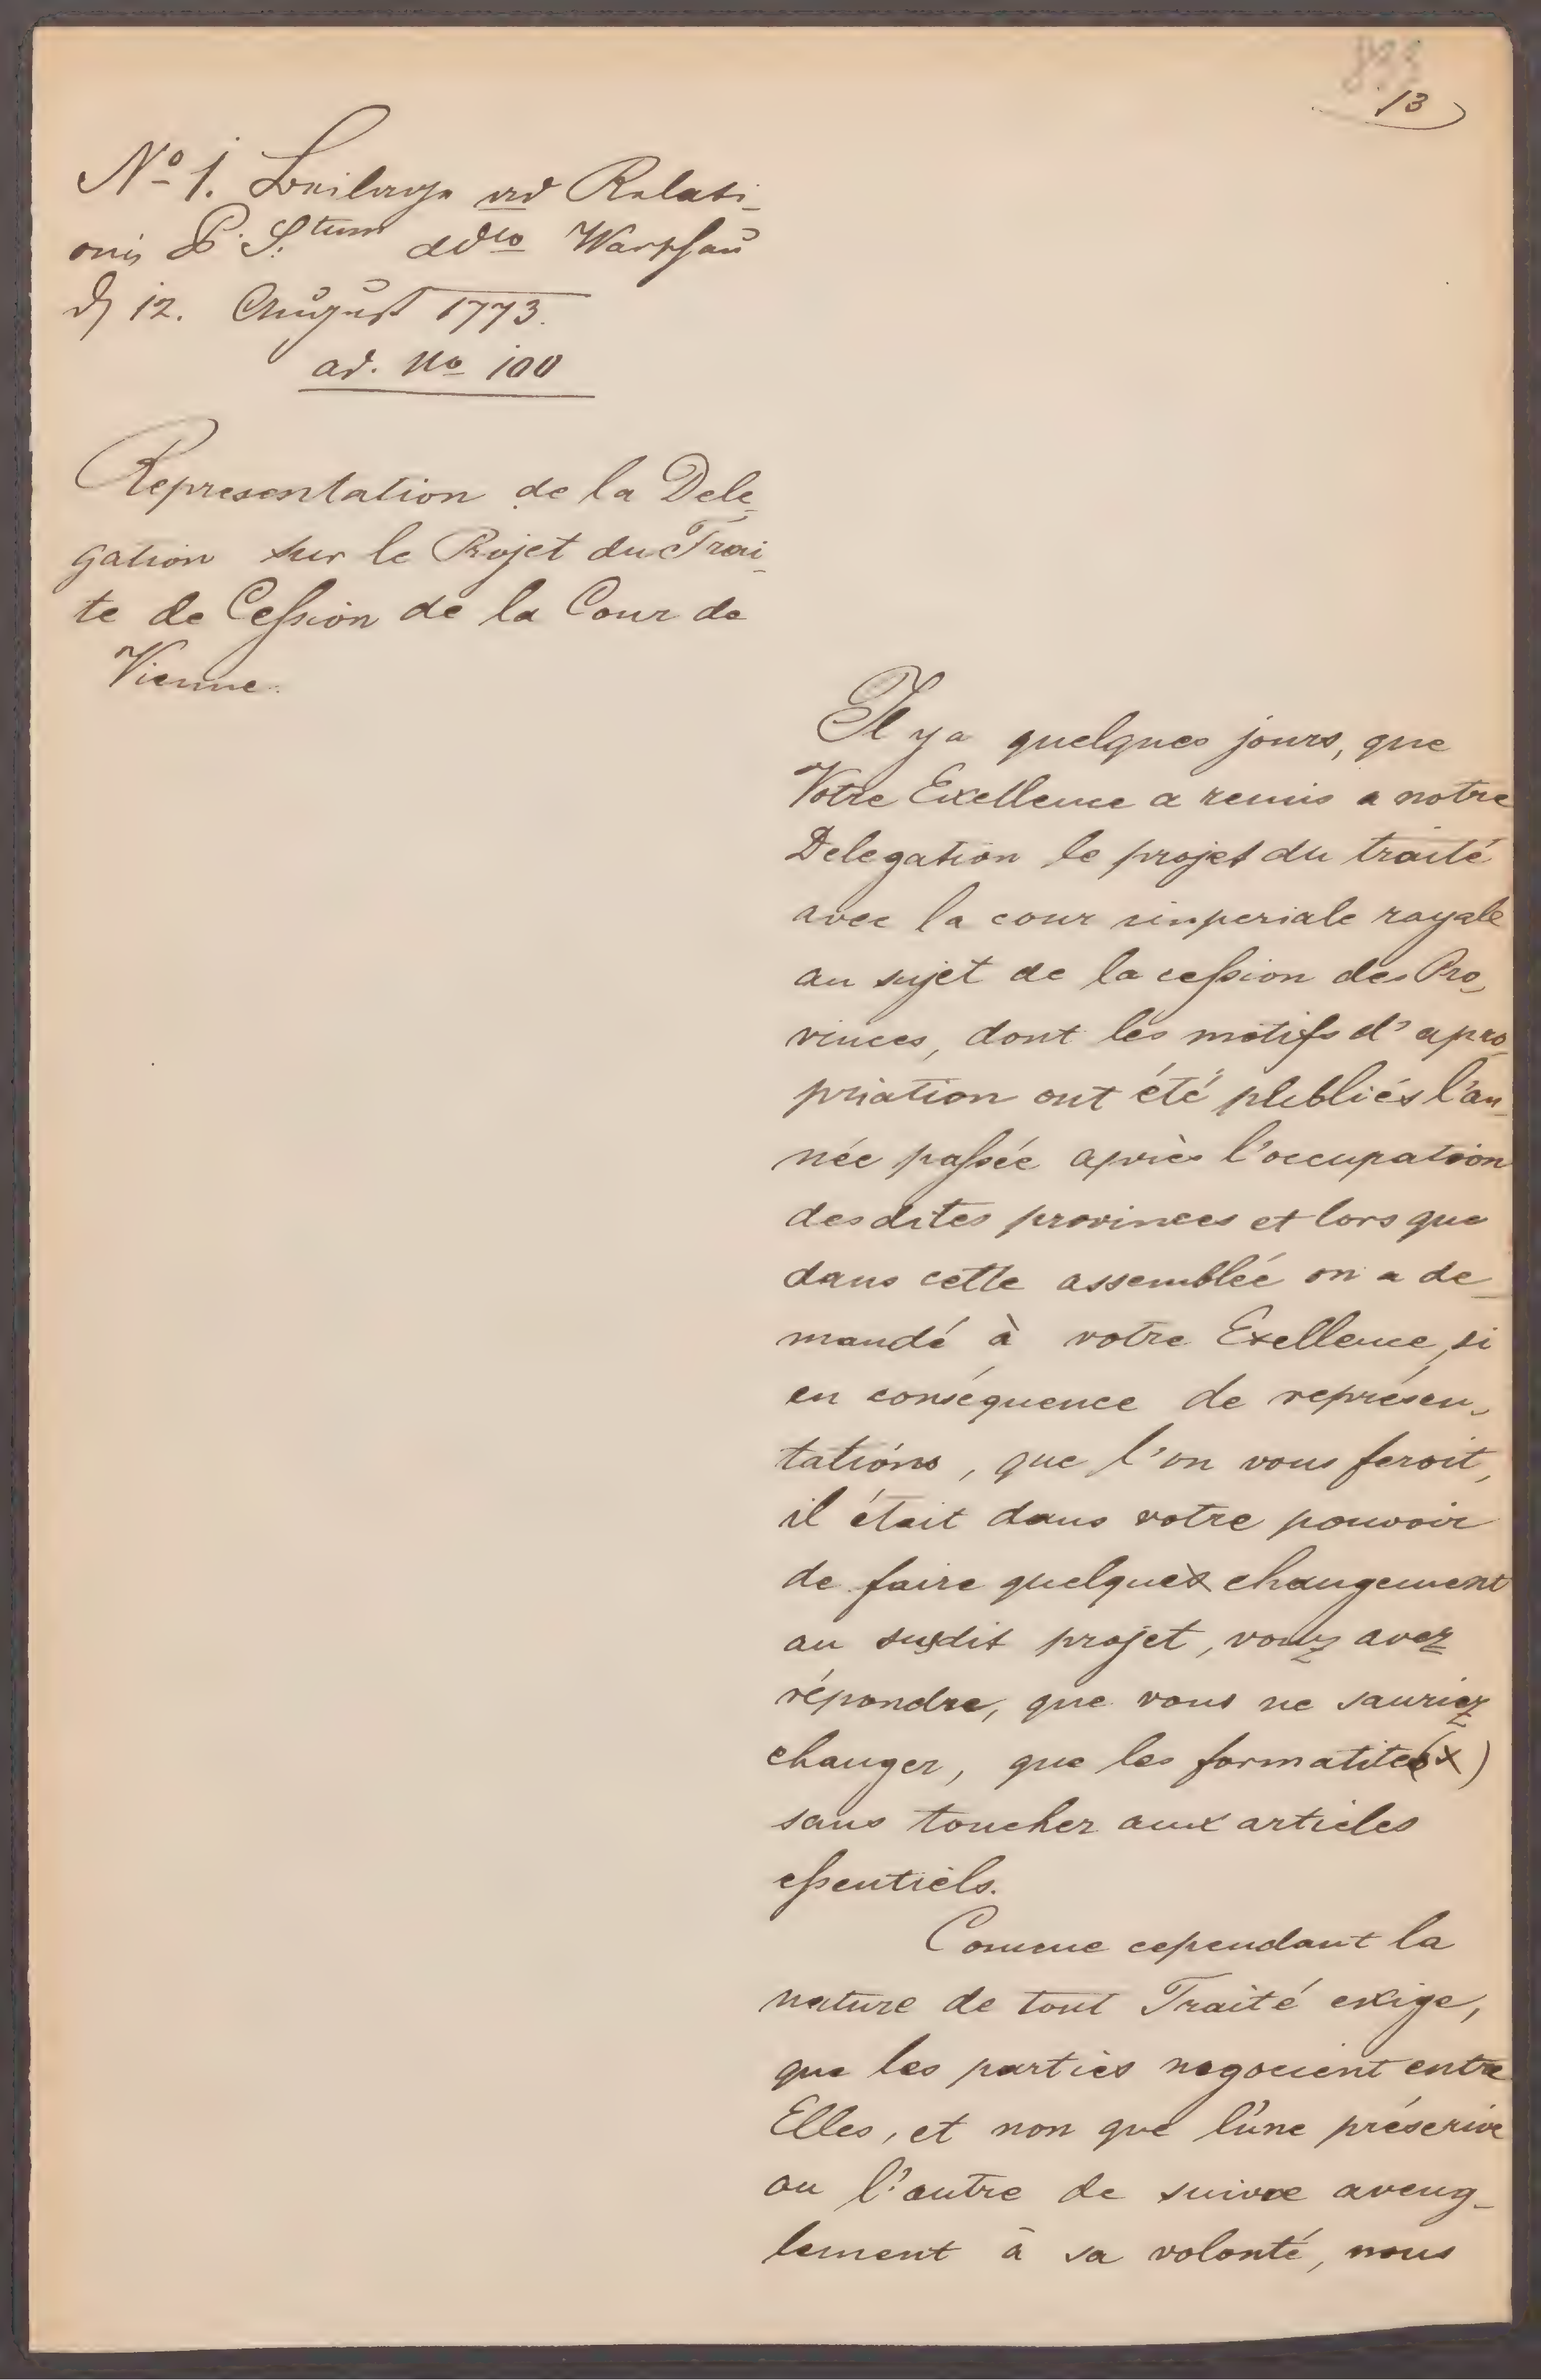 13
No 1. Beilage ad Relati-
onis P. S.tum ddto Warschau
d 12. August 1773.
ad. No 100
Representation de la Dele-
gation sur le Projet du Trai-
te de Cession de la Cour de
Vienne.
Il y a quelques jours, que
Votre Exellence a remis a notre
Delegation le projet du traité
avec la cour imperiale royale
au sujet de la cession des Pro-
vinces, dont les motifs d'apro-
priation ont été plebliés l'an-
née passée après l'occupation
des dites provinces et lors que
dans cette assemblée on a de-
mandé à votre Exellence, si
en conséquence de représen-
tations, que l'on vous feroit,
il était dans votre pouvoir
de faire quelques changement
au susdit projet, vous avez
répondre, que vous ne sauriez
changer, que les formatites (x)
sans toucher aux articles
essentiels.
Comme cependant la
nature de tout Traité exige,
que les parties negocient entre
Elles, et non que l'une préscrive
ou l'autre de suivre aveug-
lement à sa volonté, nous